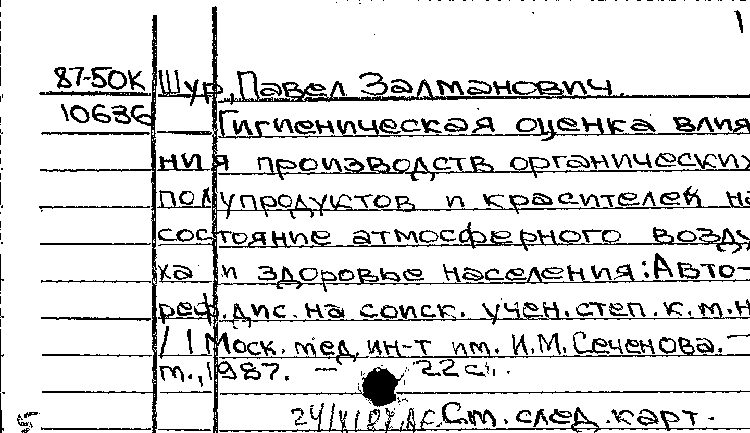 1
87-50К Шур, Павел Залманович.
10636 Гигиеническая оценка влия
ния производств органических
полупродуктов и красителей на
состояние атмосферного возду
ха и здоровье населения: Авто-
реф. дис. на соиск. учен. степ. к.м.н
/ 1 Моск. мед. ин-т им. И.М. Сеченова. –
М., 1987. – 22 с.
См. след. карт.